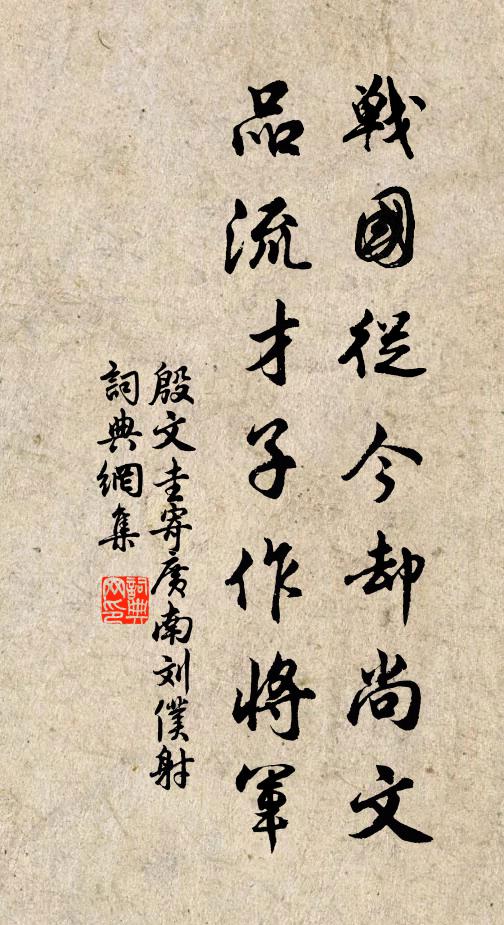 戦國從今却尚文
品流才子作將軍
殷文圭寄廣南刘僕射
詞典網集
詞典
网印